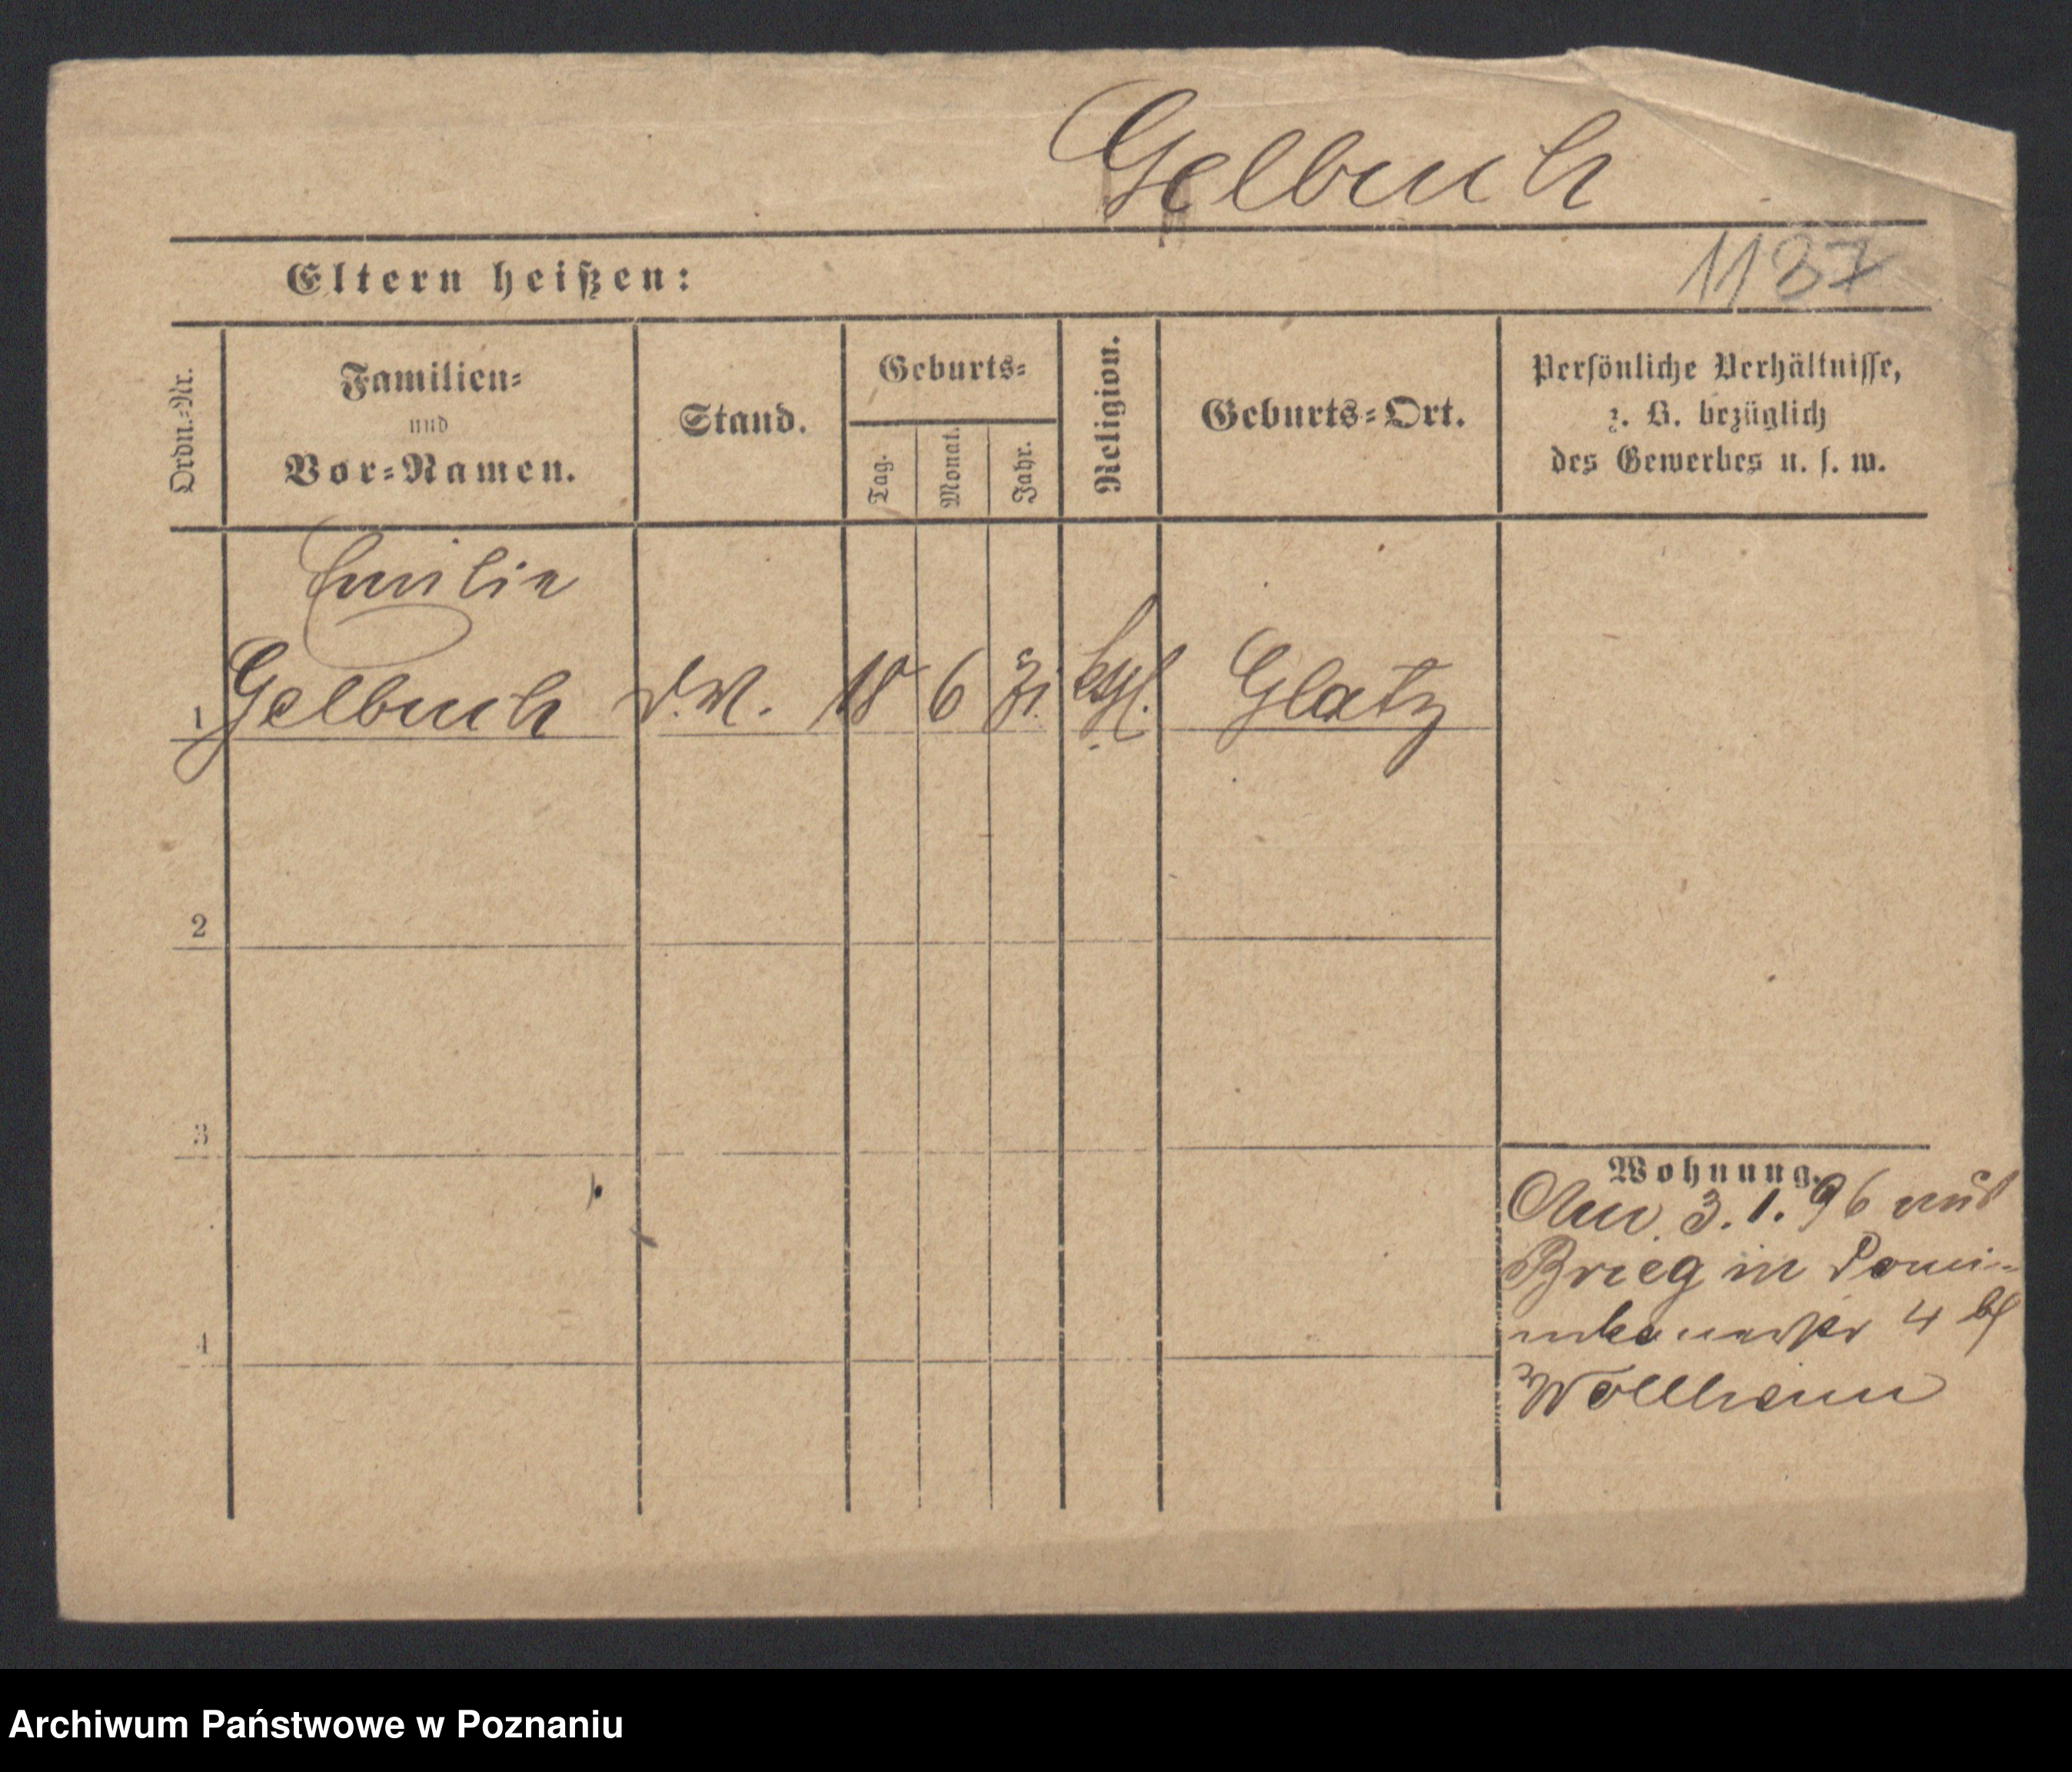 Gelbuch
1187
Eltern heißen:
Ordn.=Nr.
Familien=
und
Vor=Namen.
Stand.
Geburts=
Tag.
Monat.
Jahr.
Religion.
Geburts=Ort.
Persönliche Verhältnisse,
z. B. bezüglich
des Gewerbes u. s. w.
Emilie
1 Gelbuch 18 6 71 Glatz
2
3
4
Wohnung.
3.1.96 aus
Brieg in Domi-
4 bei
Wollheim
Archiwum Państwowe w Poznaniu